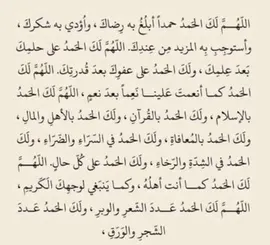 اللَّهُمَّ لَكَ الحَمدُ حمداً أبلُغُ به رِضاكَ ، وأؤدي به شكرك ،
وأستوجِبِ بِه المزيد مِن عِندِكَ. اللَّهُمَّ لَكَ الحَمدُ على حلمِكَ
بَعدَ عِلمِكَ ، ولَكَ الحَمدُ على عفوِكَ بعدَ قُدرتِكَ. اللَّهُمَّ لَكَ
الحَمدُ كمـا أنعمتَ عَلينـا نَعِماً بعدَ نعمٍ ، اللَّهُمَّ لَكَ الحَمدُ
بالإسلام ، ولَكَ الحَمدُ بالقُرآنِ ، ولَكَ الحَمدُ بالأهلِ والمالِ ،
ولَكَ الحَمدُ بالمُعافاةِ ، ولَكَ الحَمدُ في السَرَاءِ والضَرَاءِ ، ولَكَ
الحَمدُ في الشِدَةِ والرَخاءِ ، ولَكَ الحَمدُ على كُلِّ حالٍ. اللَّهُمَّ
لَكَ الحَمدُ كمـا أنت أهلُهُ ، وكمـا يَنبَغي لوجهِكَ الكَريمِ ،
اللَّهُمَّ لَكَ الحَمدُ عَـددَ الشَعرِ والوبرِ ، ولَكَ الحَمدُ عَـددَ
الشَجرِ والوَرَقِ ،